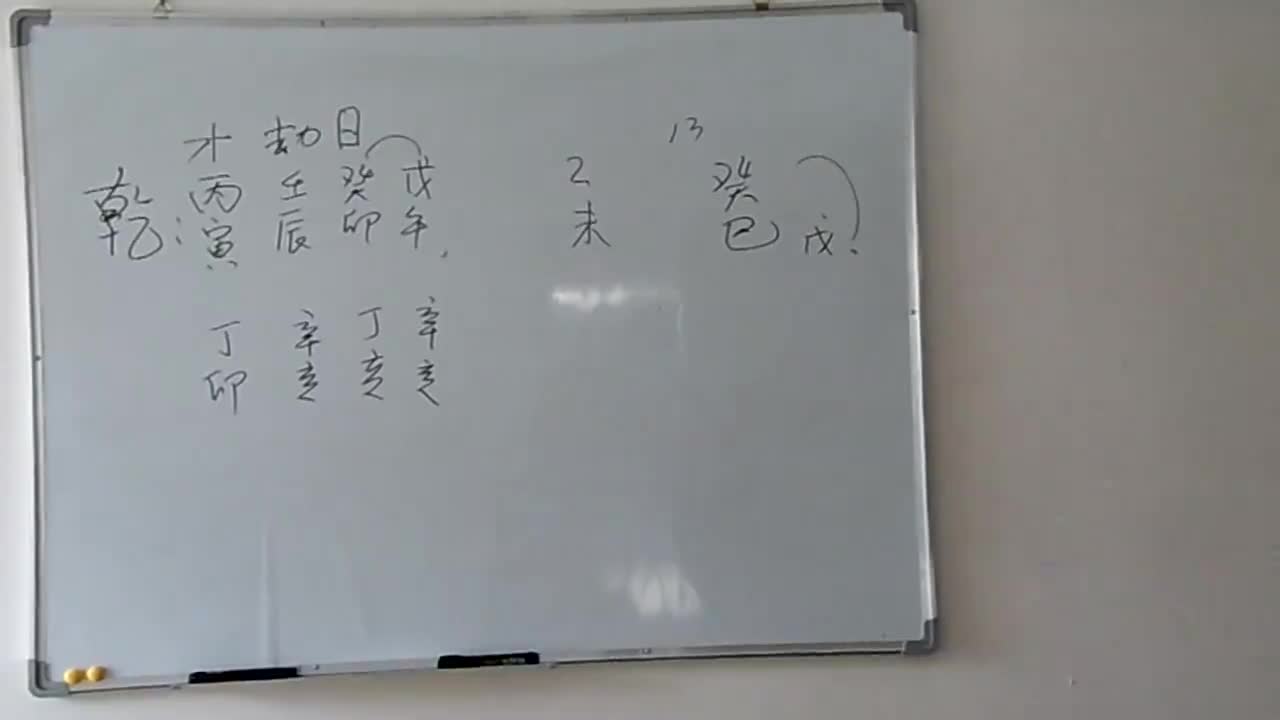 才 劫 日 13
丙 壬 癸 戊 乙 癸
乾: 寅 辰 卯 午 未 巳 戊
丁 辛 丁 辛
卯 亥 亥 亥